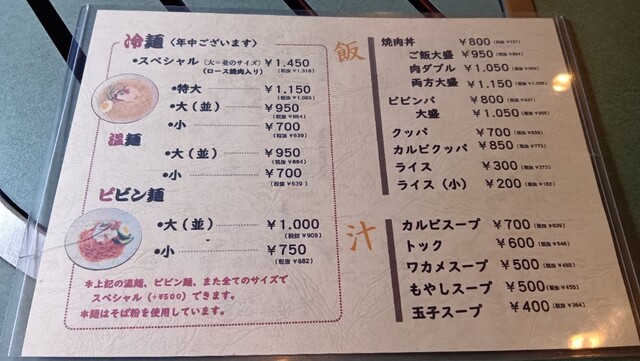 冷麺〈年中ございます〉
•スペシャル（大=並のサイズ）￥1.450
（ロース焼肉入り）（税抜￥1,319）
•特大 ￥1.150
•大（並） ￥950
（税抜￥864）
•小 ￥700
温麺
•大（並） ￥950
（税抜￥864）
•小 ￥700
ピビン麺
•大（並） ￥1.000
（税抜￥909）
•小 ￥750
（税抜￥682）
＊上記の温麺、ピビン麺、また全てのサイズで
スペシャル（+￥500）できます。
＊麺はそば粉を使用しています。
飯
焼肉丼 ￥800
ご飯大盛 ￥950（税抜￥864）
肉ダブル ￥1.050
両方大盛 ￥1.150
ビビンパ ￥800
大盛 ￥1.050
クッパ ￥700
カルビクッパ ￥850（税抜￥773）
ライス ￥300（税抜￥273）
ライス（小） ￥200（税抜￥182）
汁
カルビスープ ￥700
トック ￥600
ワカメスープ ￥500
もやしスープ ￥500（税抜￥455）
玉子スープ ￥400（税抜￥364）